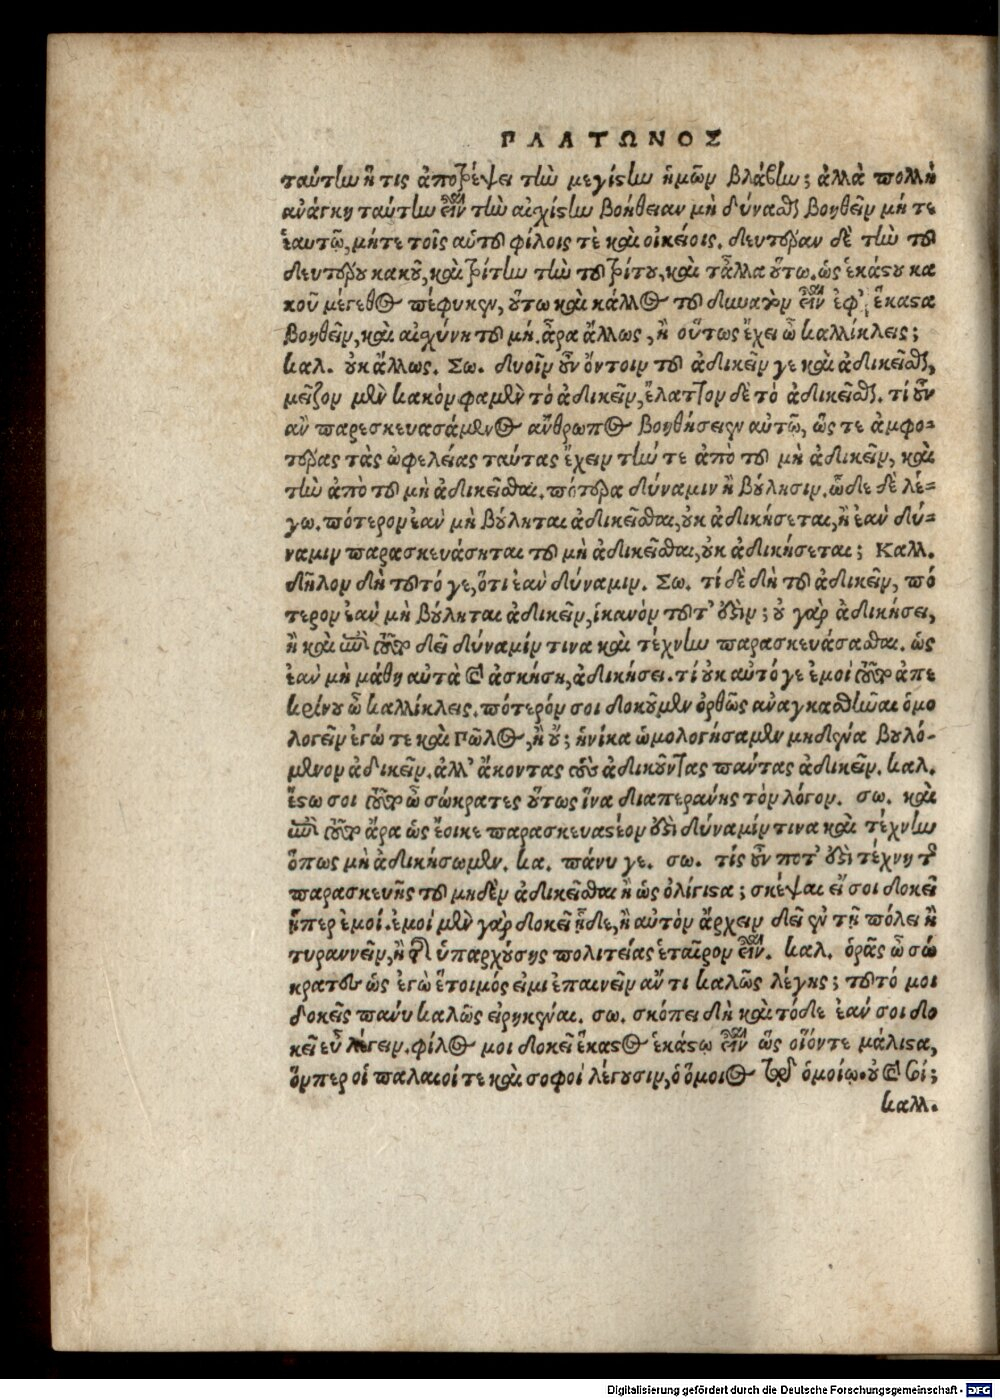 ΠΛΑΤΩΝΟΣ
ταύτην ἥ τις ἀποτρέψει τὴν μεγίστην ἡμῶν βλάβην; ἀλλὰ πολλὴ
ἀνάγκη ταύτην εἶναι τὴν αἰχίστην βοήθειαν μὴ δύνασθαι βοηθεῖν μή τε
ἑαυτῷ, μήτε τοῖς αὑτοῦ φίλοις τὲ καὶ οἰκείοις. δευτέραν δὲ τὴν τοῦ
δευτέρου κακοῦ, καὶ τρίτην τὴν τοῦ τρίτου, καὶ τἆλλα οὕτω. ὡς ἑκάστου κα
κοῦ μέγεθος πέφυκεν, οὕτω καὶ κάλλος τοῦ δυνατὸν εἶναι ἐφ' ἕκαστα
βοηθεῖν, καὶ αἰχύνη τοῦ μή. ἆρα ἄλλως, ἢ οὕτως ἔχει ὦ καλλίκλεις;
καλ. οὐκ ἄλλως. Σω. δυοῖν οὖν ὄντοιν τοῦ ἀδικεῖν γε καὶ ἀδικεῖσθαι,
μεῖζον μὲν κακὸν φαμὲν τὸ ἀδικεῖν, ἔλαττον δὲ τὸ ἀδικεῖσθαι. τί οὖν
ἂν παρεσκευασάμενος ἄνθρωπος βοηθήσειεν αὑτῷ, ὥς τε ἀμφο-
τέρας τὰς ὠφελείας ταύτας ἔχειν τήν τε ἀπὸ τοῦ μὴ ἀδικεῖν, καὶ
τὴν ἀπὸ τοῦ μὴ ἀδικεῖσθαι. πότερα δύναμιν ἢ βούλησιν. ὧδε δὲ λέ-
γω. πότερον ἐὰν μὴ βούληται ἀδικεῖσθαι, οὐκ ἀδικήσεται, ἢ ἐὰν δύ-
ναμιν παρασκευάσηται τοῦ μὴ ἀδικεῖσθαι, οὐκ ἀδικήσεται; Καλλ.
δῆλον δὴ τοῦτό γε, ὅτι ἐὰν δύναμιν. Σω. τί δὲ δὴ τοῦ ἀδικεῖν, πό
τερον ἐὰν μὴ βούληται ἀδικεῖν, ἱκανὸν τοῦτ' ἐστὶν; οὐ γὰρ ἀδικήσει,
ἢ καὶ ἐπὶ τοῦτο δεῖ δύναμίν τινα καὶ τέχνην παρασκευάσασθαι. ὡς
ἐὰν μὴ μάθῃ αὐτὰ καὶ ἀσκήσῃ, ἀδικήσει. τί οὐκ αὐτό γε ἐμοὶ τοῦτο ἀπε
κρίνου ὦ καλλίκλεις. πότερόν σοι δοκοῦμεν ὀρθῶς ἀναγκασθῆναι ὁμο
λογεῖν ἐγώ τε καὶ Πῶλος, ἢ οὔ; ἡνίκα ὡμολογήσαμεν μηδένα βουλό-
μενον ἀδικεῖν. ἀλλ' ἄκοντας τοὺς ἀδικοῦντας πάντας ἀδικεῖν. καλ.
ἔστω σοι τοῦτο ὦ σώκρατες οὕτως ἵνα διαπεράνῃς τὸν λόγον. σω. καὶ
ἐπὶ τοῦτο ἄρα ὡς ἔοικε παρασκευαστέον ἐστὶ δύναμίν τινα καὶ τέχνην
ὅπως μὴ ἀδικήσωμεν. κα. πάνυ γε. σω. τίς οὖν ποτ' ἐστὶ τέχνη τῆς
παρασκευῆς τοῦ μηδὲν ἀδικεῖσθαι ἢ ὡς ὀλίγιστα; σκέψαι εἴ σοι δοκεῖ
ᾗπερ ἐμοί. ἐμοὶ μὲν γὰρ δοκεῖ ᾗδε, ἢ αὐτὸν ἄρχειν δεῖ ἐν τῇ πόλει ἢ
τυραννεῖν, ἢ τῆς ὑπαρχούσης πολιτείας ἑταῖρον εἶναι. καλ. ὁρᾷς ὦ σώ
κρατες ὡς ἐγὼ ἕτοιμός εἰμι ἐπαινεῖν ἄν τι καλῶς λέγῃς; τοῦτό μοι
δοκεῖς πάνυ καλῶς εἰρηκέναι. σω. σκόπει δὴ καὶ τόδε ἐάν σοι δο
κεῖ εὖ λέγειν. φίλος μοι δοκεῖ ἕκαστος ἑκάστῳ εἶναι ὡς οἷόντε μάλιστα,
ὅνπερ οἱ παλαιοί τε καὶ σοφοὶ λέγουσιν, ὁ ὅμοιος τῷ ὁμοίῳ. οὐ καὶ σοί;
καλλ.
Digitalisierung gefördert durch die Deutsche Forschungsgemeinschaft - DFG